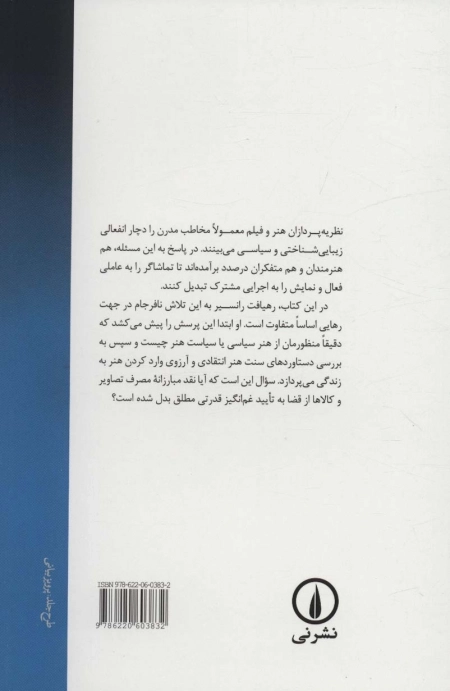 نظریه‌پردازان هنر و فیلم معمولاً مخاطب مدرن را دچار انفعالی
زیبایی‌شناختی و سیاسی می‌بینند. در پاسخ به این مسئله، هم
هنرمندان و هم متفکران درصدد برآمده‌اند تا تماشاگر را به عاملی
فعال و نمایش را به اجرایی مشترک تبدیل کنند.
در این کتاب، رهیافت رانسیر به این تلاش نافرجام در جهت
رهایی اساساً متفاوت است. او ابتدا این پرسش را پیش می‌کشد که
دقیقاً منظورمان از هنر سیاسی یا سیاست هنر چیست و سپس به
بررسی دستاوردهای سنت هنر انتقادی و آرزوی وارد کردن هنر به
زندگی می‌پردازد. سؤال این است که آیا نقد مبارزانهٔ مصرف تصاویر
و کالاها از قضا به تأیید غم‌انگیز قدرتی مطلق بدل شده است؟
طرح جلد: پرویز بیانی
ISBN 978-622-06-0383-2
9 786220 603832
نشرنی